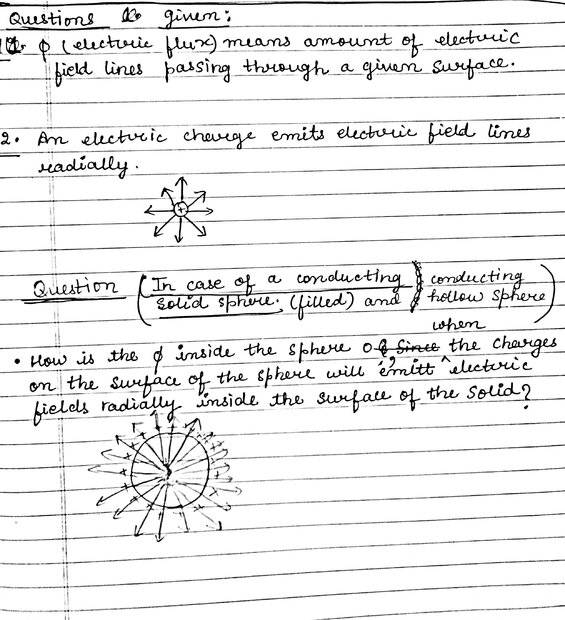 Questions given:
1. ϕ (electric flux) means amount of electric
field lines passing through a given surface.
2. An electric charge emits electric field lines
radially.
+
Question (In case of a conducting
solid sphere. (filled) and
conducting
hollow sphere)
when
• How is the ϕ inside the sphere 0, Since the charges
on the surface of the sphere will emitt ^ electric
fields radially inside the surface of the solid?